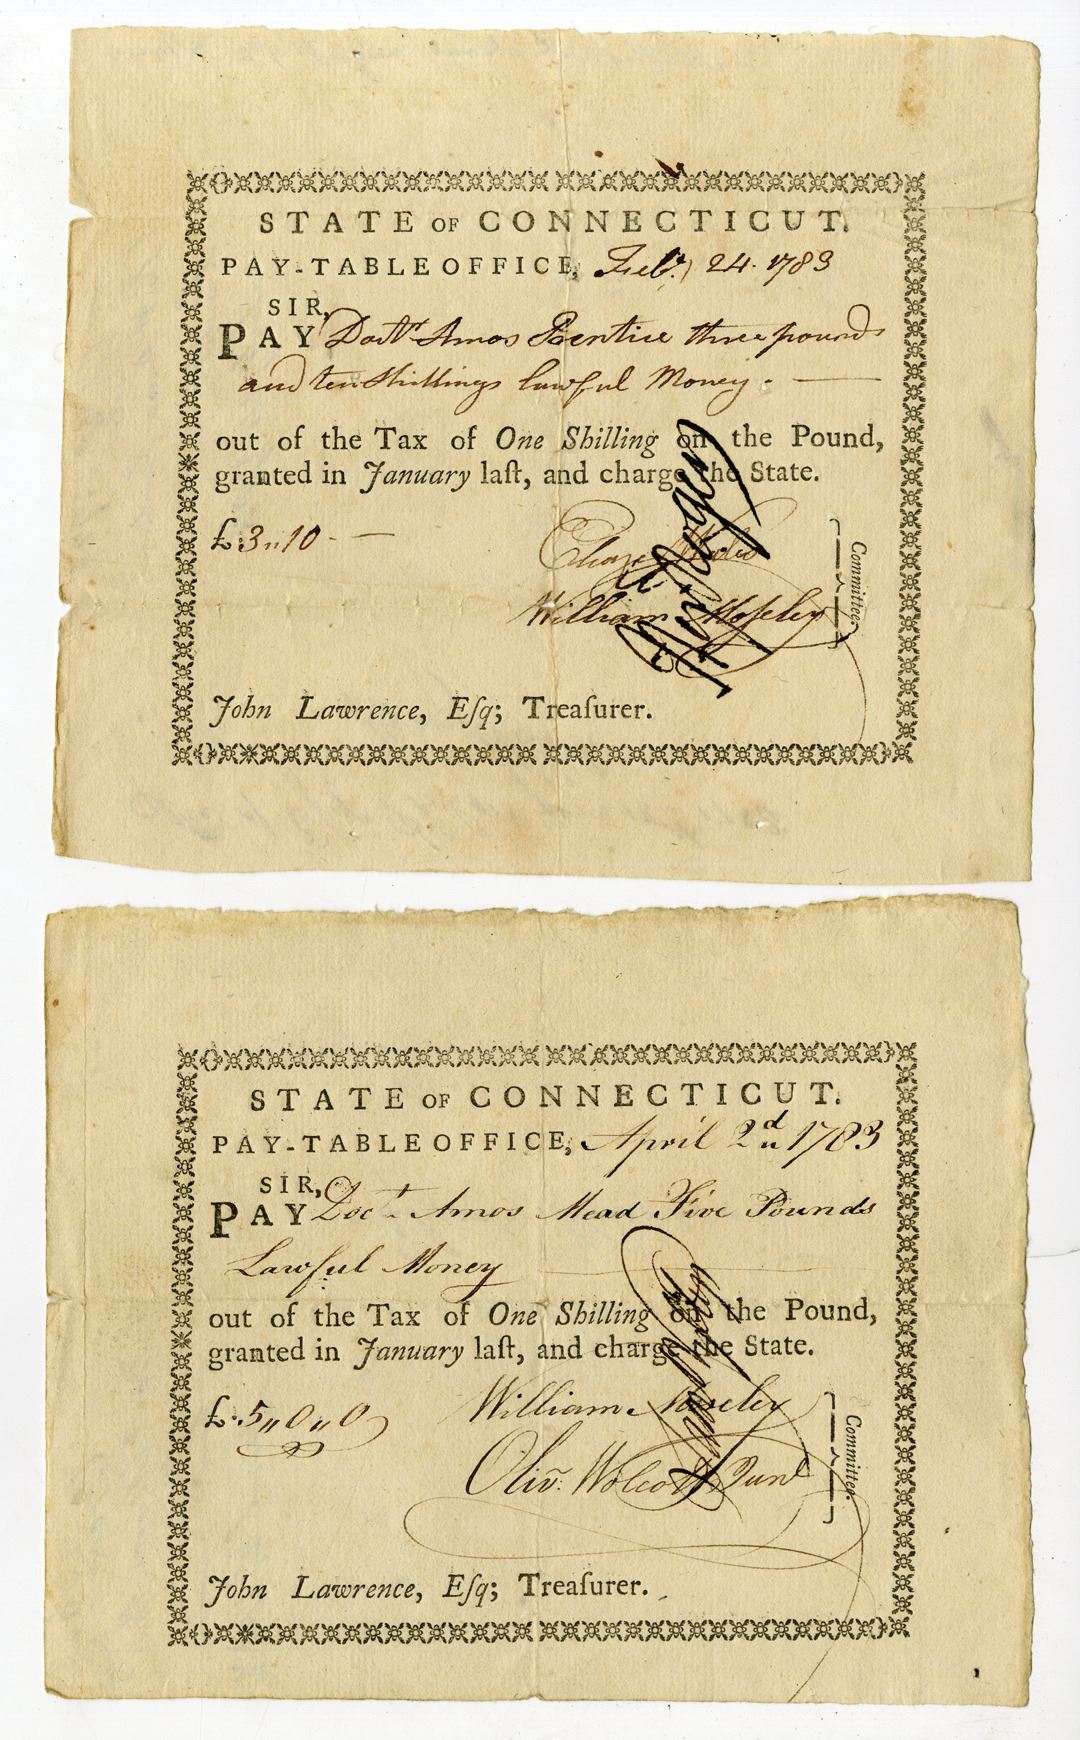 STATE OF CONNECTICUT.
PAY-TABLE OFFICE, Feby. 24. 1783
SIR,
PAY Doctr. Amos Prentice three pounds
and ten Shillings lawful Money. —
out of the Tax of One Shilling on the Pound,
granted in January laſt, and charge the State.
£.3„10 - —
William Moſeley
Committee.
John Lawrence, Eſq; Treaſurer.
STATE OF CONNECTICUT.
PAY-TABLE OFFICE, April 2d „ 1783
SIR,
PAY Doct. Amos Mead Five Pounds
Lawful Money
out of the Tax of One Shilling on the Pound,
granted in January laſt, and charge the State.
£.5„0„0
William Moseley
Olivr. Wolcott Junr
Committee.
John Lawrence, Eſq; Treaſurer.